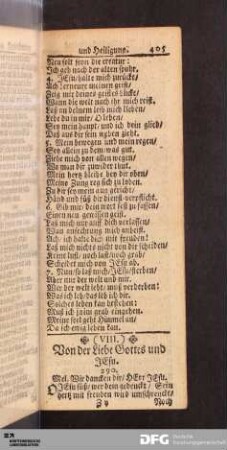 und Heiligung. 405
Neu soll seyn die creatur:
Ich geh nach der alten spuhr.
4. JEsu/halte mich zurücke/
Ach erneure meinen geist/
Zeig mir deines geistes lücke/
Wann die welt nach ihr mich reist,
Laß an deinem leib mich kleben/
Lebe du in mir/ O leben/
Sey mein haupt/ und ich dein glied/
Daß aus dir sein
5. Mein bewegen und mein regen/
Sey allein zu dem was gut.
Ziehe mich von allen wegen/
Wo man dir zuwider thut.
Mein hertz bleibe bey dir oben/
Meine zung reg sich zu loben.
Zu dir sey mein aug gericht/
Händ und füß die dienst verpflicht.
6. Gib mir/ dein wort fest zu fassen/
Einen neu gewissen geist.
Laß mich nur nicht dich verlassen/
Wan anfechtung mich
Ach! ich halte dich mit freuden!
Laß mich nichts nicht von dir scheiden/
Keine lust/ noch last/ noch grab/
Scheidet mich von JEsu ab.
7. Nun/ so laß mich/ JEsu/ sterben/
Aber nur der welt und mir.
Wer der welt lebt/ muß verderben:
Was ich leb/ das leb ich dir.
Solches leben kan bestehen:
Muß ich dann grab eingehen.
Meine seel geht Himmel an/
Da ich ewig leben kan.
(VIII.)
Von der Liebe Gottes und
JEsu.
290.
Mel. Wir dancken dir/ HErr JEsu.
O JEsu süß wer dein gedenckt/ Sein
hertz mit freuden wird
Noch
DFG Deutsche
Forschungsgemeinschaft